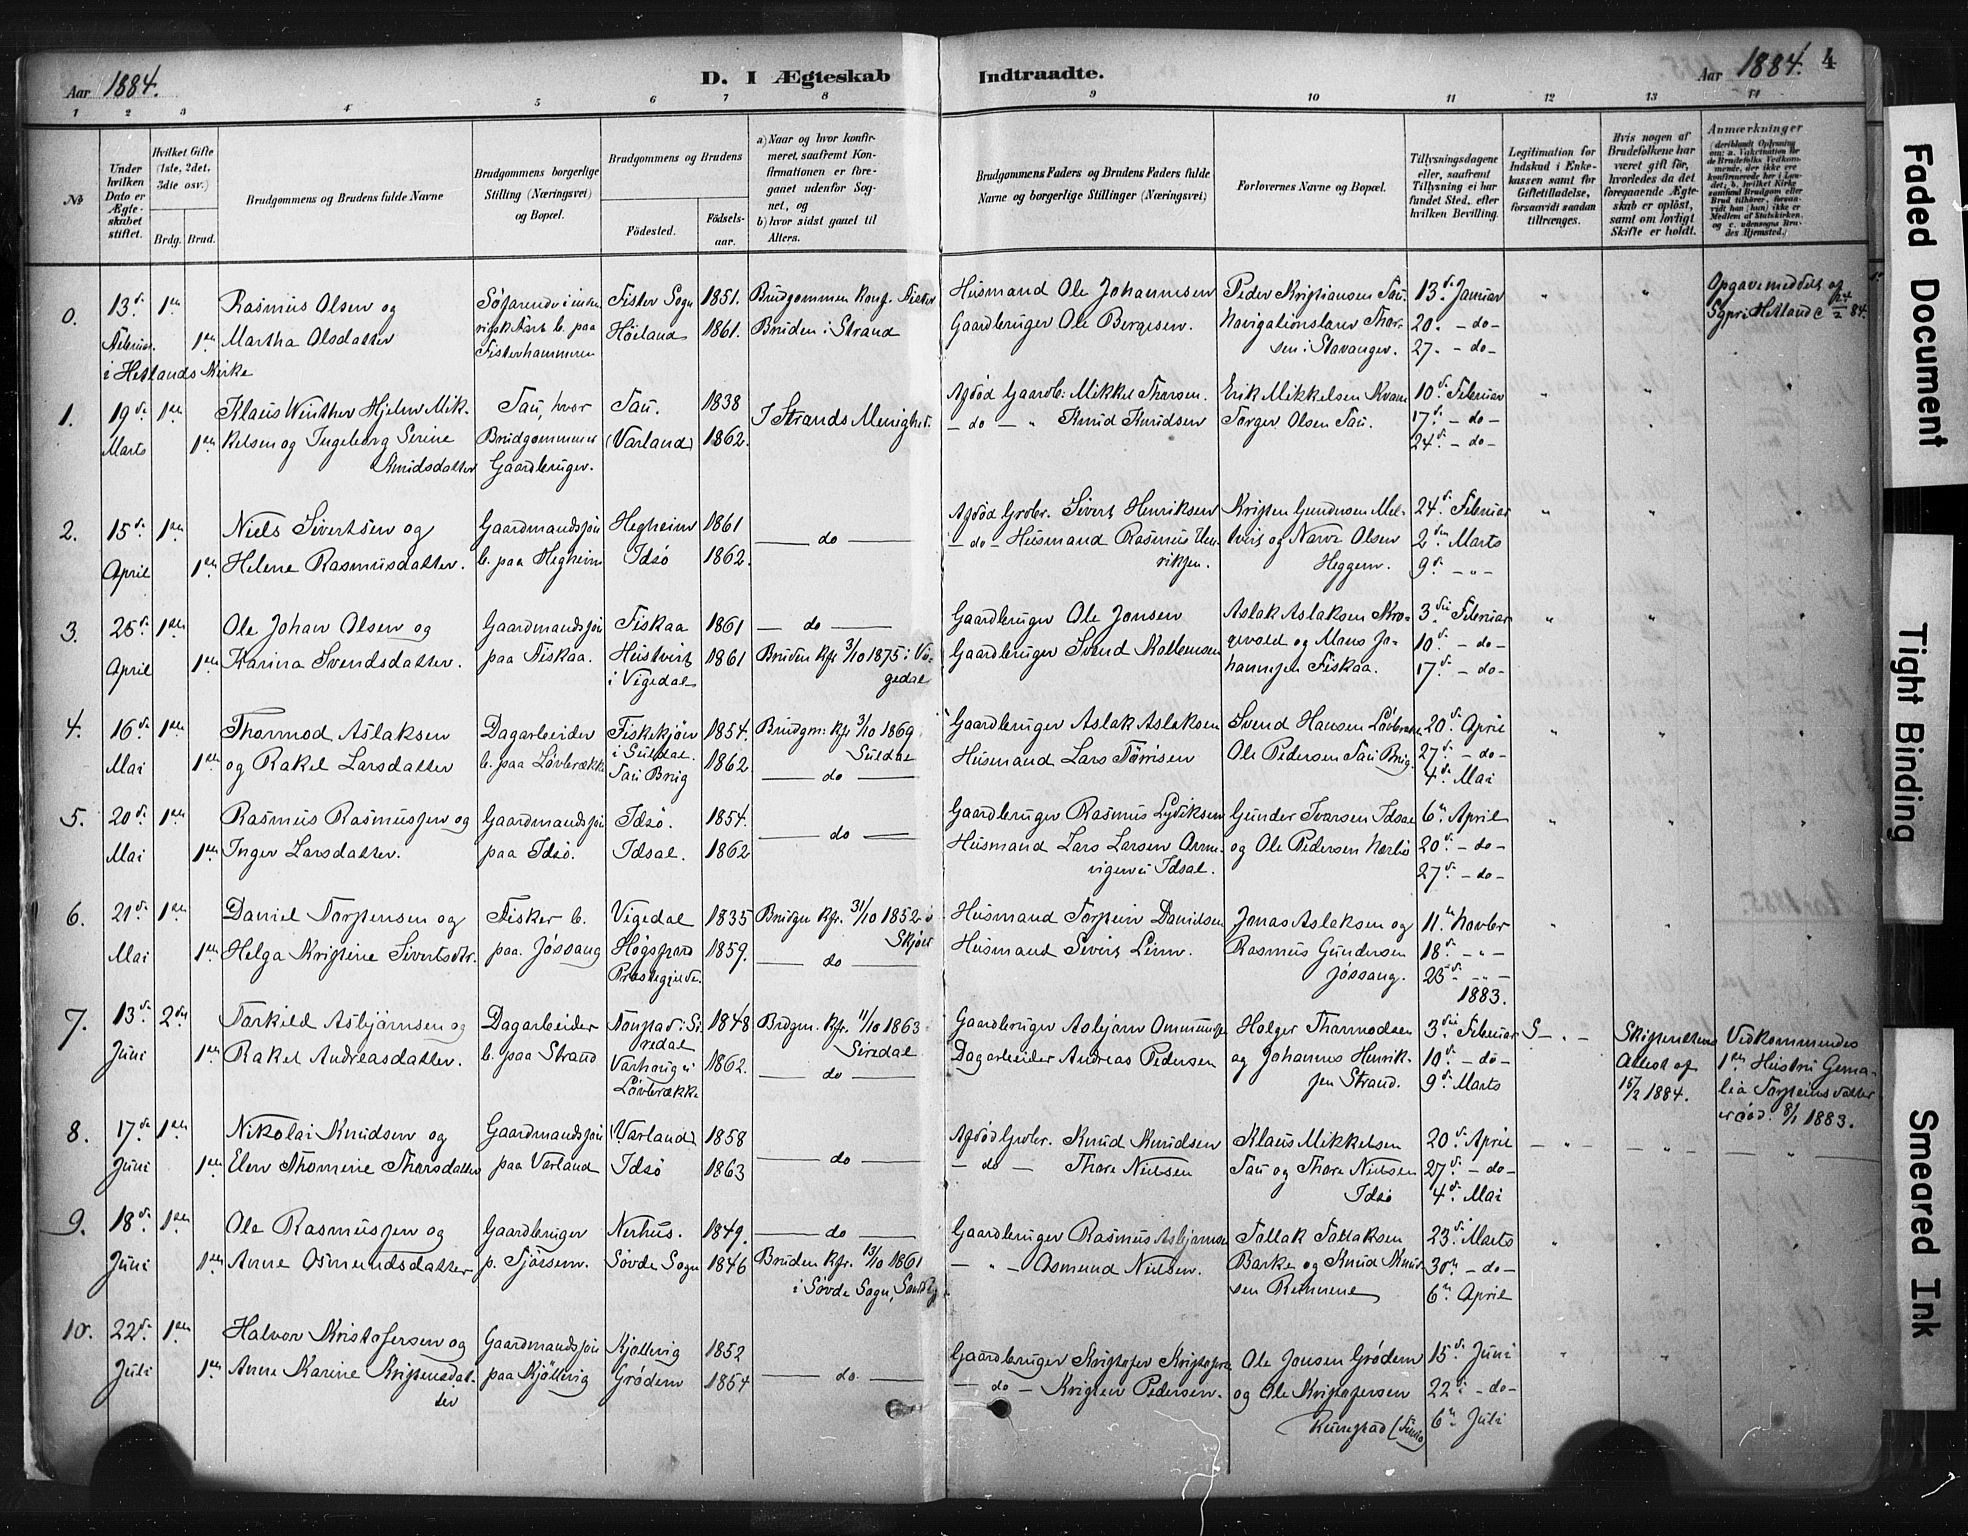 Aar 1884.
D. I Ægteskab Indtraadte.
Aar 1884. 4
1 2 3 4 5 6 7 8 9 10 11 12 13 14
№
Under hvilken Dato er Ægteskabet stiftet.
Hvilket Gifte (1ste, 2det, 3die osv.)
Brdg. Brud.
Brudgommens og Brudens fulde Navne
Brudgommens borgerlige Stilling (Næringsvei) og Bopæl.
Brudgommens og Brudens
Födested. Födselsaar.
a) Naar og hvor konfirmeret, saafremt Konfirmationen er foregaaet udenfor Sognet, og
b) hvor sidst gaaet til Alters.
Brudgommens Faders og Brudens Faders fulde Navne og borgerlige Stillinger (Næringsvei)
Forlovernes Navne og Bopæl.
Tillysningsdagene eller, saafremt Tillysning ei har fundet Sted, efter hvilken Bevilling.
Legitimation for Indskud i Enkekassen samt for Giftetilladelse, forsaavidt saadan tiltrænges.
Hvis nogen af Brudefolkene har været gift før, hvorledes da det foregaaende Ægteskab er oplöst, samt om lovligt Skifte er holdt.
Anmærkninger
0. 13de Februar i Hetlands Kirke 1ste 1ste
Rasmus Olsen og
Martha Olsdatter
Fisterhammeren
Fister Sogn 1851.
Høiland 1861.
Brudgommen konf. Fister
Bruden i Strand
Husmand Ole Johannesen
Gaardbruger Ole Bergesen.
Peder Kristiansen Tau.
Navigationslærer Thorsen i Stavanger.
13de Januar
20. – do –
27. – do –
Opgave meddelt af Sgpr. Hetland 24/2 84.
1. 19de Marts 1ste 1ste
Klaus Winther Hjelm Mikkelsen og Ingeborg Serine Knudsdatter
Tau, hvor Brudgommen Gaardbruger.
Tau. 1838
(Varland) 1862.
I Strands Menighed.
Afdød Gaardb. Mikkel Thorsen.
– do – „ Knud Knudsen
Erik Mikkelsen Kvam
Torger Olsen Tau.
10de Februar
17de – do –
24de – do –
2. 15de April 1ste 1ste
Niels Sivertsen og
Helene Rasmusdatter.
Gaardmandssøn b. paa Hegheim
Hegheim 1861
Idsö 1862.
— do —
Afdød Grdbr. Sivert Henriksen
– do – Husmand Rasmus Henriksen.
Kristen Gundersen Meltveit og Narve Olsen Heggem.
24de Februar
2den Marts
9de – „ –
3. 25de April 1ste 1ste
Ole Johan Olsen og
Karina Svendsdatter.
Gaardmandssøn paa Fiskaa.
Fiskaa 1861
Hustveit i Vigedal 1861
— do —
Bruden kfr 3/10 1875 i Vigedal
Gaardbruger Ole Jonsen
Gaardbruger Svend Kolbensen
Aslak Aslaksen Krogevold og Mons Johannesen Fiskaa.
3die Februar
10de – do –
17de – do –
4. 16de Mai 1ste 1ste
Thormod Aslaksen
og Rakel Larsdatter
Dagarbeider b. paa Løvbrække
Fiskekjön i Suldal 1854.
Tau Brug 1862
Brudgm: kfr 3/10 1869 Suldal
— do —
Gaardbruger Aslak Aslaksen
Husmand Lars Tørrisen
Svend Hansen Løvbrække
Ole Pedersen Tau Brug.
20de April
27de – do –
4de Mai
5. 20de Mai 1ste 1ste
Rasmus Rasmussen og
Inger Larsdatter.
Gaardmandssøn paa Idsø.
Idsö. 1854.
Idsal. 1862
— do —
Gaardbruger Rasmus Lydiksen
Husmand Lars Larsen Armvigen i Idsal.
Gunder Ivarsen Idsal
og Ole Pedersen Nærbö
6te April
20de – do –
27de – do –
6. 21de Mai 1ste 1ste
Daniel Torstensen og
Helga Kristine Sivertsdtr.
Fisker b. paa Jøssang
Vigedal 1835
Høgsfjord Præstegjeld. 1859.
Brudgm kfr. 31/10 1852 i Skjold
— do —
Husmand Torstein Danielsen
Husmand Sivert Linn.
Jonas Aslaksen og
Rasmus Gundersen Jøssang.
11te Novber
18de – „ –
25de – „ –
1883.
7. 13de Juni 2det 1ste
Tarkild Asbjørnsen og
Rakel Andreasdatter.
Dagarbeider b. paa Strand
Tonstad i Siredal 1848
Varhoug i Løvbrække 1862.
Brdgm. kfr. 11/10 1863 Siredal
— do —
Gaardbruger Asbjørn Ommundsen
Dagarbeider Andreas Pedersen
Holger Thormodsen
og Johannes Henriksen Strand.
3die Februar
10de – do –
9de Marts
S – „ –
Skifterettens Attest af 15/2 1884.
Vedkommendes 1ste Hustru Gemalia Torsteinsdatter er død 8/1 1883.
8. 17de Juni 1ste 1ste
Nikolai Knudsen og
Elen Thomine Thorsdatter
Gaardmandssøn paa Varland
(Varland) 1858
Idsö 1863
— do —
Afdød Grdbr. Knud Knudsen
– do – Thore Nielsen
Klaus Mikkelsen
Tau og Thore Nielsen Idsö
20de April
27de – do –
4de Mai
9. 18de Juni 1ste 1ste
Ole Rasmussen og
Anne Osmundsdatter
Gaardbruger p. Tjøssem.
Nerhus. 1849.
Søvde Sogn 1846
— do —
Bruden kfr. 13/10 1861 i Søvde Sogn,
Gaardbruger Rasmus Asbjørnsen
– „ – Osmund Nielsen.
Tollak Tollaksen
Barke og Knud Knudsen
23de Marts
30te – do –
6te April
10. 22de Juli 1ste 1ste
Halvor Kristofersen og
Anne Karine Kristensdatter
Gaardmandssøn paa Kjölevig
Kjöllevig 1852
Grødem 1864
— do. —
Gaardbruger Kristofer Kristofersen
– do – Kristen Pedersen.
Ole Jonsen Grødem
og Ole Kristofersen
15de Juni
22de – do –
6te Juli
Faded Document
Tight Binding
Smeared Ink